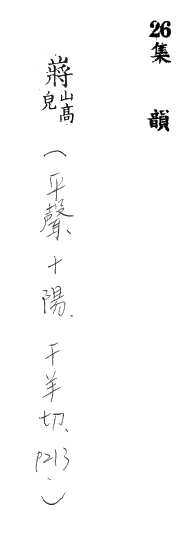 26集韻
嶈山髙皃（平聲、十陽.千羊切、P213.）